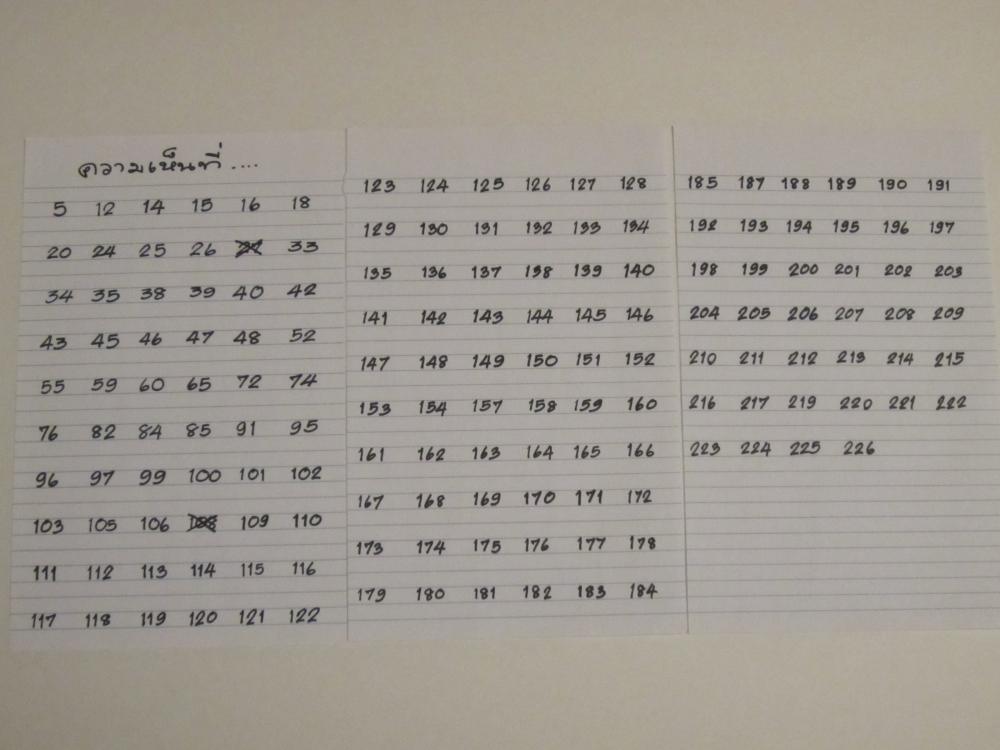 ความเห็นที่ ....
5 12 14 15 16 18
20 24 25 26 33
34 35 38 39 40 42
43 45 46 47 48 52
55 59 60 65 72 74
76 82 84 85 91 95
96 97 99 100 101 102
103 105 106 109 110
111 112 113 114 115 116
117 118 119 120 121 122
123 124 125 126 127 128
129 130 131 132 133 134
135 136 137 138 139 140
141 142 143 144 145 146
147 148 149 150 151 152
153 154 157 158 159 160
161 162 163 164 165 166
167 168 169 170 171 172
173 174 175 176 177 178
179 180 181 182 183 184
185 187 188 189 190 191
192 193 194 195 196 197
198 199 200 201 202 203
204 205 206 207 208 209
210 211 212 213 214 215
216 217 219 220 221 222
223 224 225 226